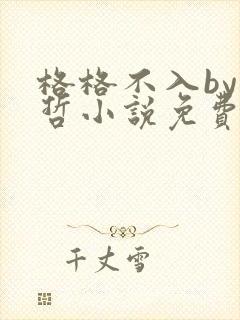 格格不入by
哲小說免費
千丈雪